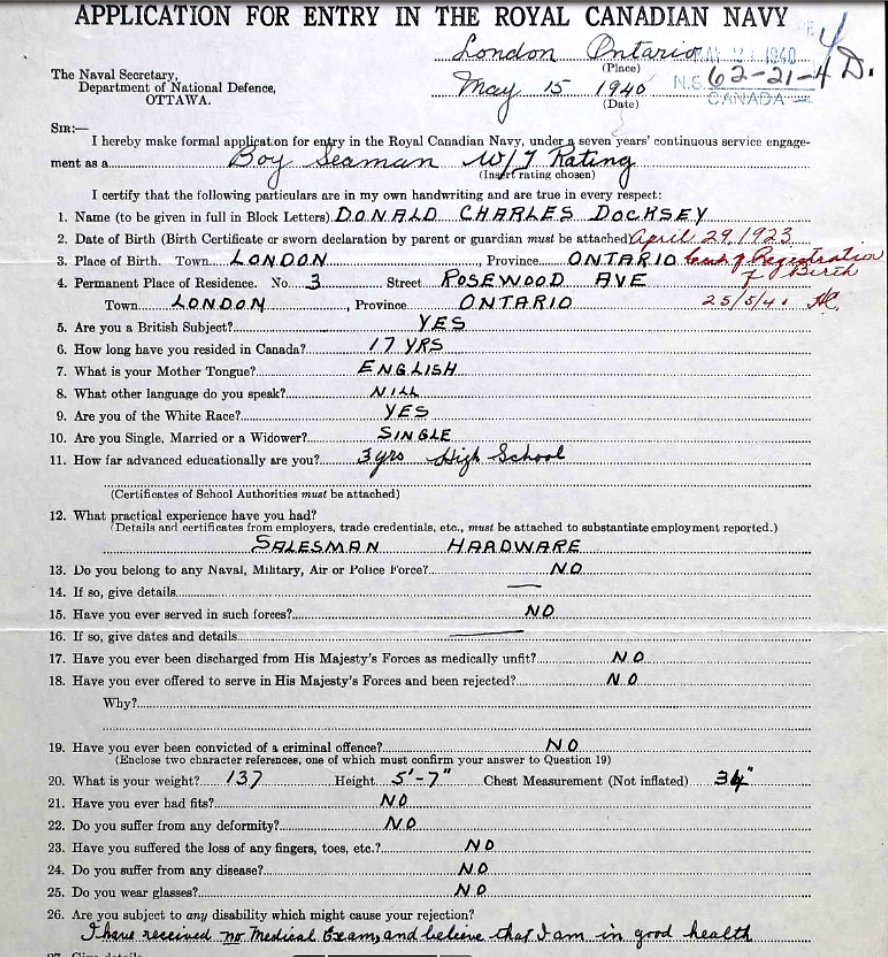 APPLICATION FOR ENTRY IN THE ROYAL CANADIAN NAVY
London Ontario MAY 21 1940 4
(Place)
The Naval Secretary, May 15 1940 N.S. 62-21-4 D.
Department of National Defence, (Date) CANADA
OTTAWA.
SIR:—
I hereby make formal application for entry in the Royal Canadian Navy, under a seven years' continuous service engage-
ment as a Boy Seaman W/T Rating
(Insert rating chosen)
I certify that the following particulars are in my own handwriting and are true in every respect:
1. Name (to be given in full in Block Letters) DONALD CHARLES DOCKSEY
2. Date of Birth (Birth Certificate or sworn declaration by parent or guardian must be attached) April 29, 1923
3. Place of Birth. Town LONDON, Province ONTARIO of Registration
of Birth
4. Permanent Place of Residence. No. 3 Street ROSEWOOD AVE
Town LONDON, Province ONTARIO 25/5/40
5. Are you a British Subject? YES
6. How long have you resided in Canada? 17 YRS
7. What is your Mother Tongue? ENGLISH
8. What other language do you speak? NILL
9. Are you of the White Race? YES
10. Are you Single, Married or a Widower? SINGLE
11. How far advanced educationally are you? 3 yrs High School
(Certificates of School Authorities must be attached)
12. What practical experience have you had?
(Details and certificates from employers, trade credentials, etc., must be attached to substantiate employment reported.)
SALESMAN HARDWARE
13. Do you belong to any Naval, Military, Air or Police Force? NO
14. If so, give details —
15. Have you ever served in such forces? NO
16. If so, give dates and details —
17. Have you ever been discharged from His Majesty's Forces as medically unfit? NO
18. Have you ever offered to serve in His Majesty's Forces and been rejected? NO
Why?
19. Have you ever been convicted of a criminal offence? NO
(Enclose two character references, one of which must confirm your answer to Question 19)
20. What is your weight? 137 Height 5'-7" Chest Measurement (Not inflated) 34"
21. Have you ever had fits? NO
22. Do you suffer from any deformity? NO
23. Have you suffered the loss of any fingers, toes, etc.? NO
24. Do you suffer from any disease? NO
25. Do you wear glasses? NO
26. Are you subject to any disability which might cause your rejection?
I have received no Medical Exam, and believe that I am in good health
27. Give details